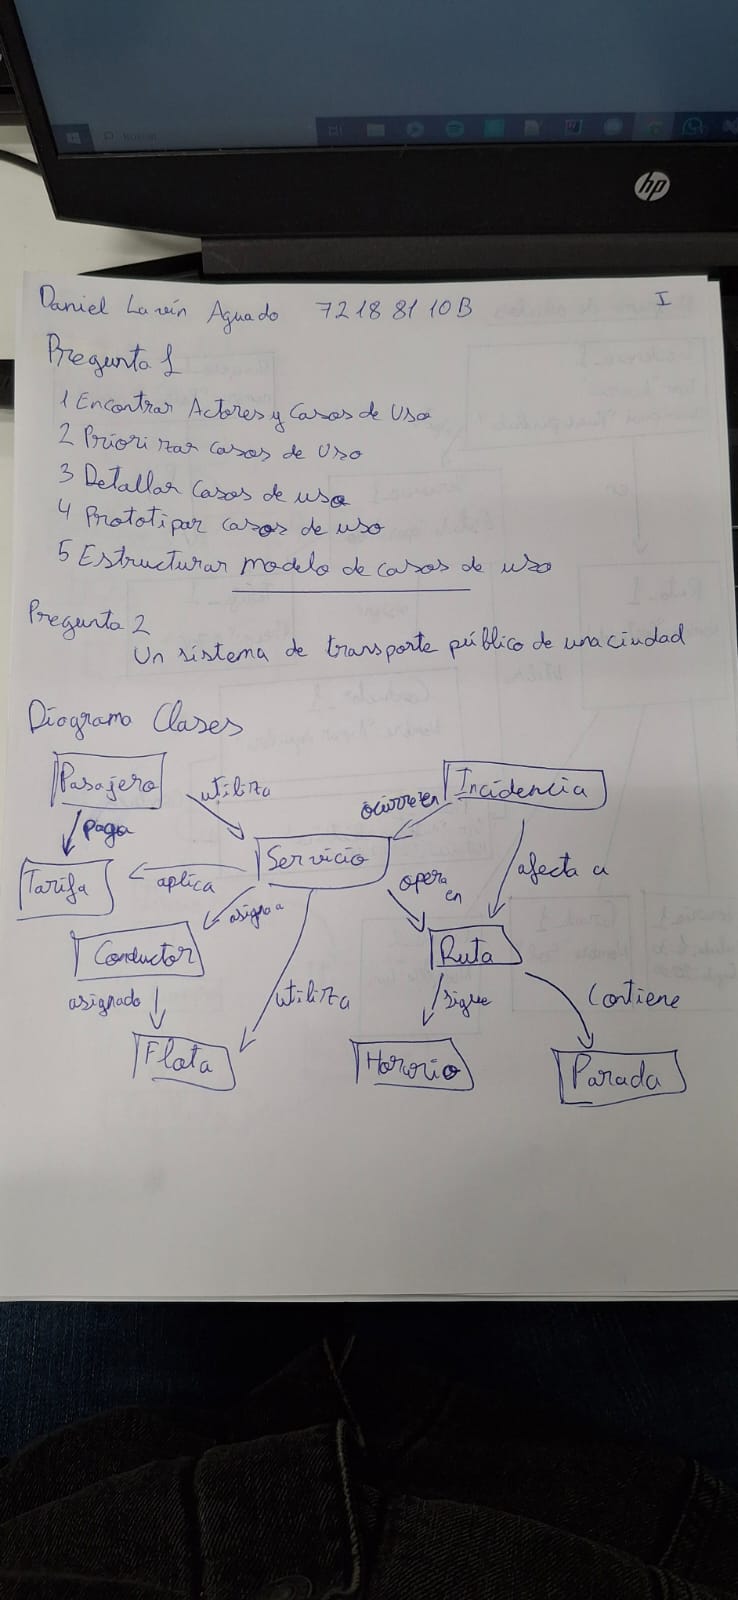 hp
Daniel Lavín Aguado 72188110B I
Pregunta 1
1 Encontrar Actores y Casos de Uso
2 Priorizar casos de Uso
3 Detallar casos de uso
4 Prototipar casos de uso
5 Estructurar modelo de casos de uso
Pregunta 2
Un sistema de transporte público de una ciudad
Diagrama Clases
Pasajero utiliza Incidencia
ocurre en
paga
Servicio
Tarifa aplica opera en afecta a
asigna a
Conductor Ruta
asignado utiliza sigue Contiene
Flota Horario Parada